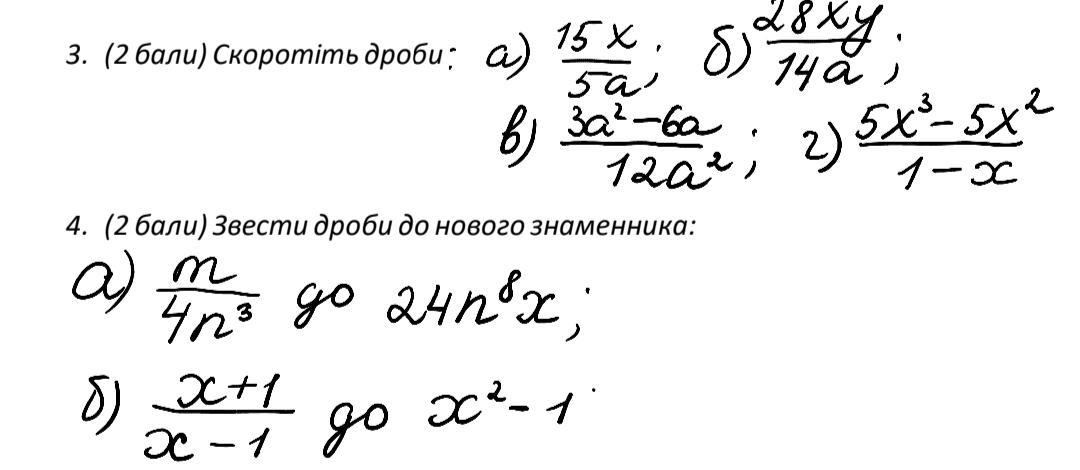 3. (2 бали) Скоротіть дроби: а) 15x/5a; б) 28xy/14a;
в) (3a²-6a)/12a²; г) (5x³-5x²)/(1-x)
4. (2 бали) Звести дроби до нового знаменника:
а) m/4n³ до 24n⁸x;
б) (x+1)/(x-1) до x²-1